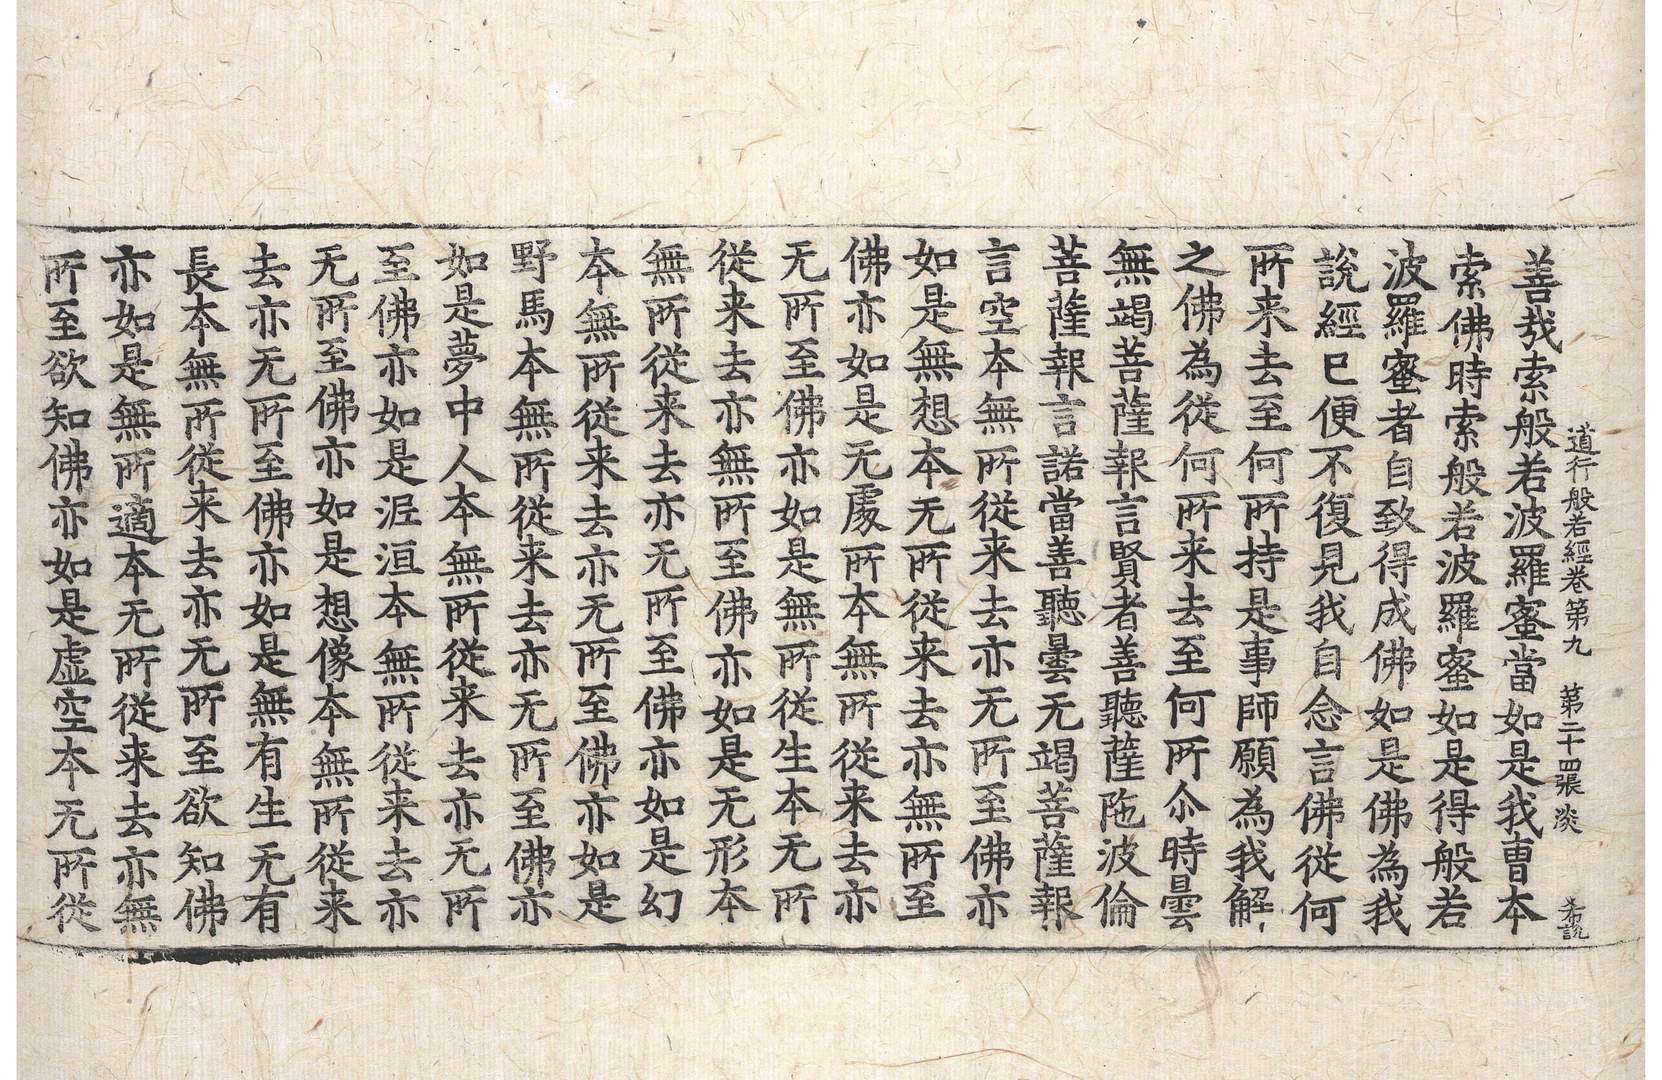 道行般若經卷第九 第二十四張 淡
善哉索般若波羅蜜當如是我曹本
索佛時索般若波羅蜜如是得般若
波羅蜜者自致得成佛如是佛為我
說經已便不復見我自念言佛從何
所来去至何所持是事師願為我解
之佛為從何所来去至何所尒時曇
無竭菩薩報言賢者善聽薩陁波倫
菩薩報言諾當善聽曇无竭菩薩報
言空本無所從来去亦无所至佛亦
如是無想本无所從来去亦無所至
佛亦如是无處所本無所從来去亦
无所至佛亦如是無所從生本无所
從来去亦無所至佛亦如是无形本
無所從来去亦无所至佛亦如是幻
本無所從来去亦无所至佛亦如是
野馬本無所從来去亦无所至佛亦
如是夢中人本無所從来去亦无所
至佛亦如是泥洹本無所從来去亦
无所至佛亦如是想像本無所從来
去亦无所至佛亦如是無有生无有
長本無所從来去亦无所至欲知佛
亦如是無所適本无所從来去亦無
所至欲知佛亦如是虛空本无所從